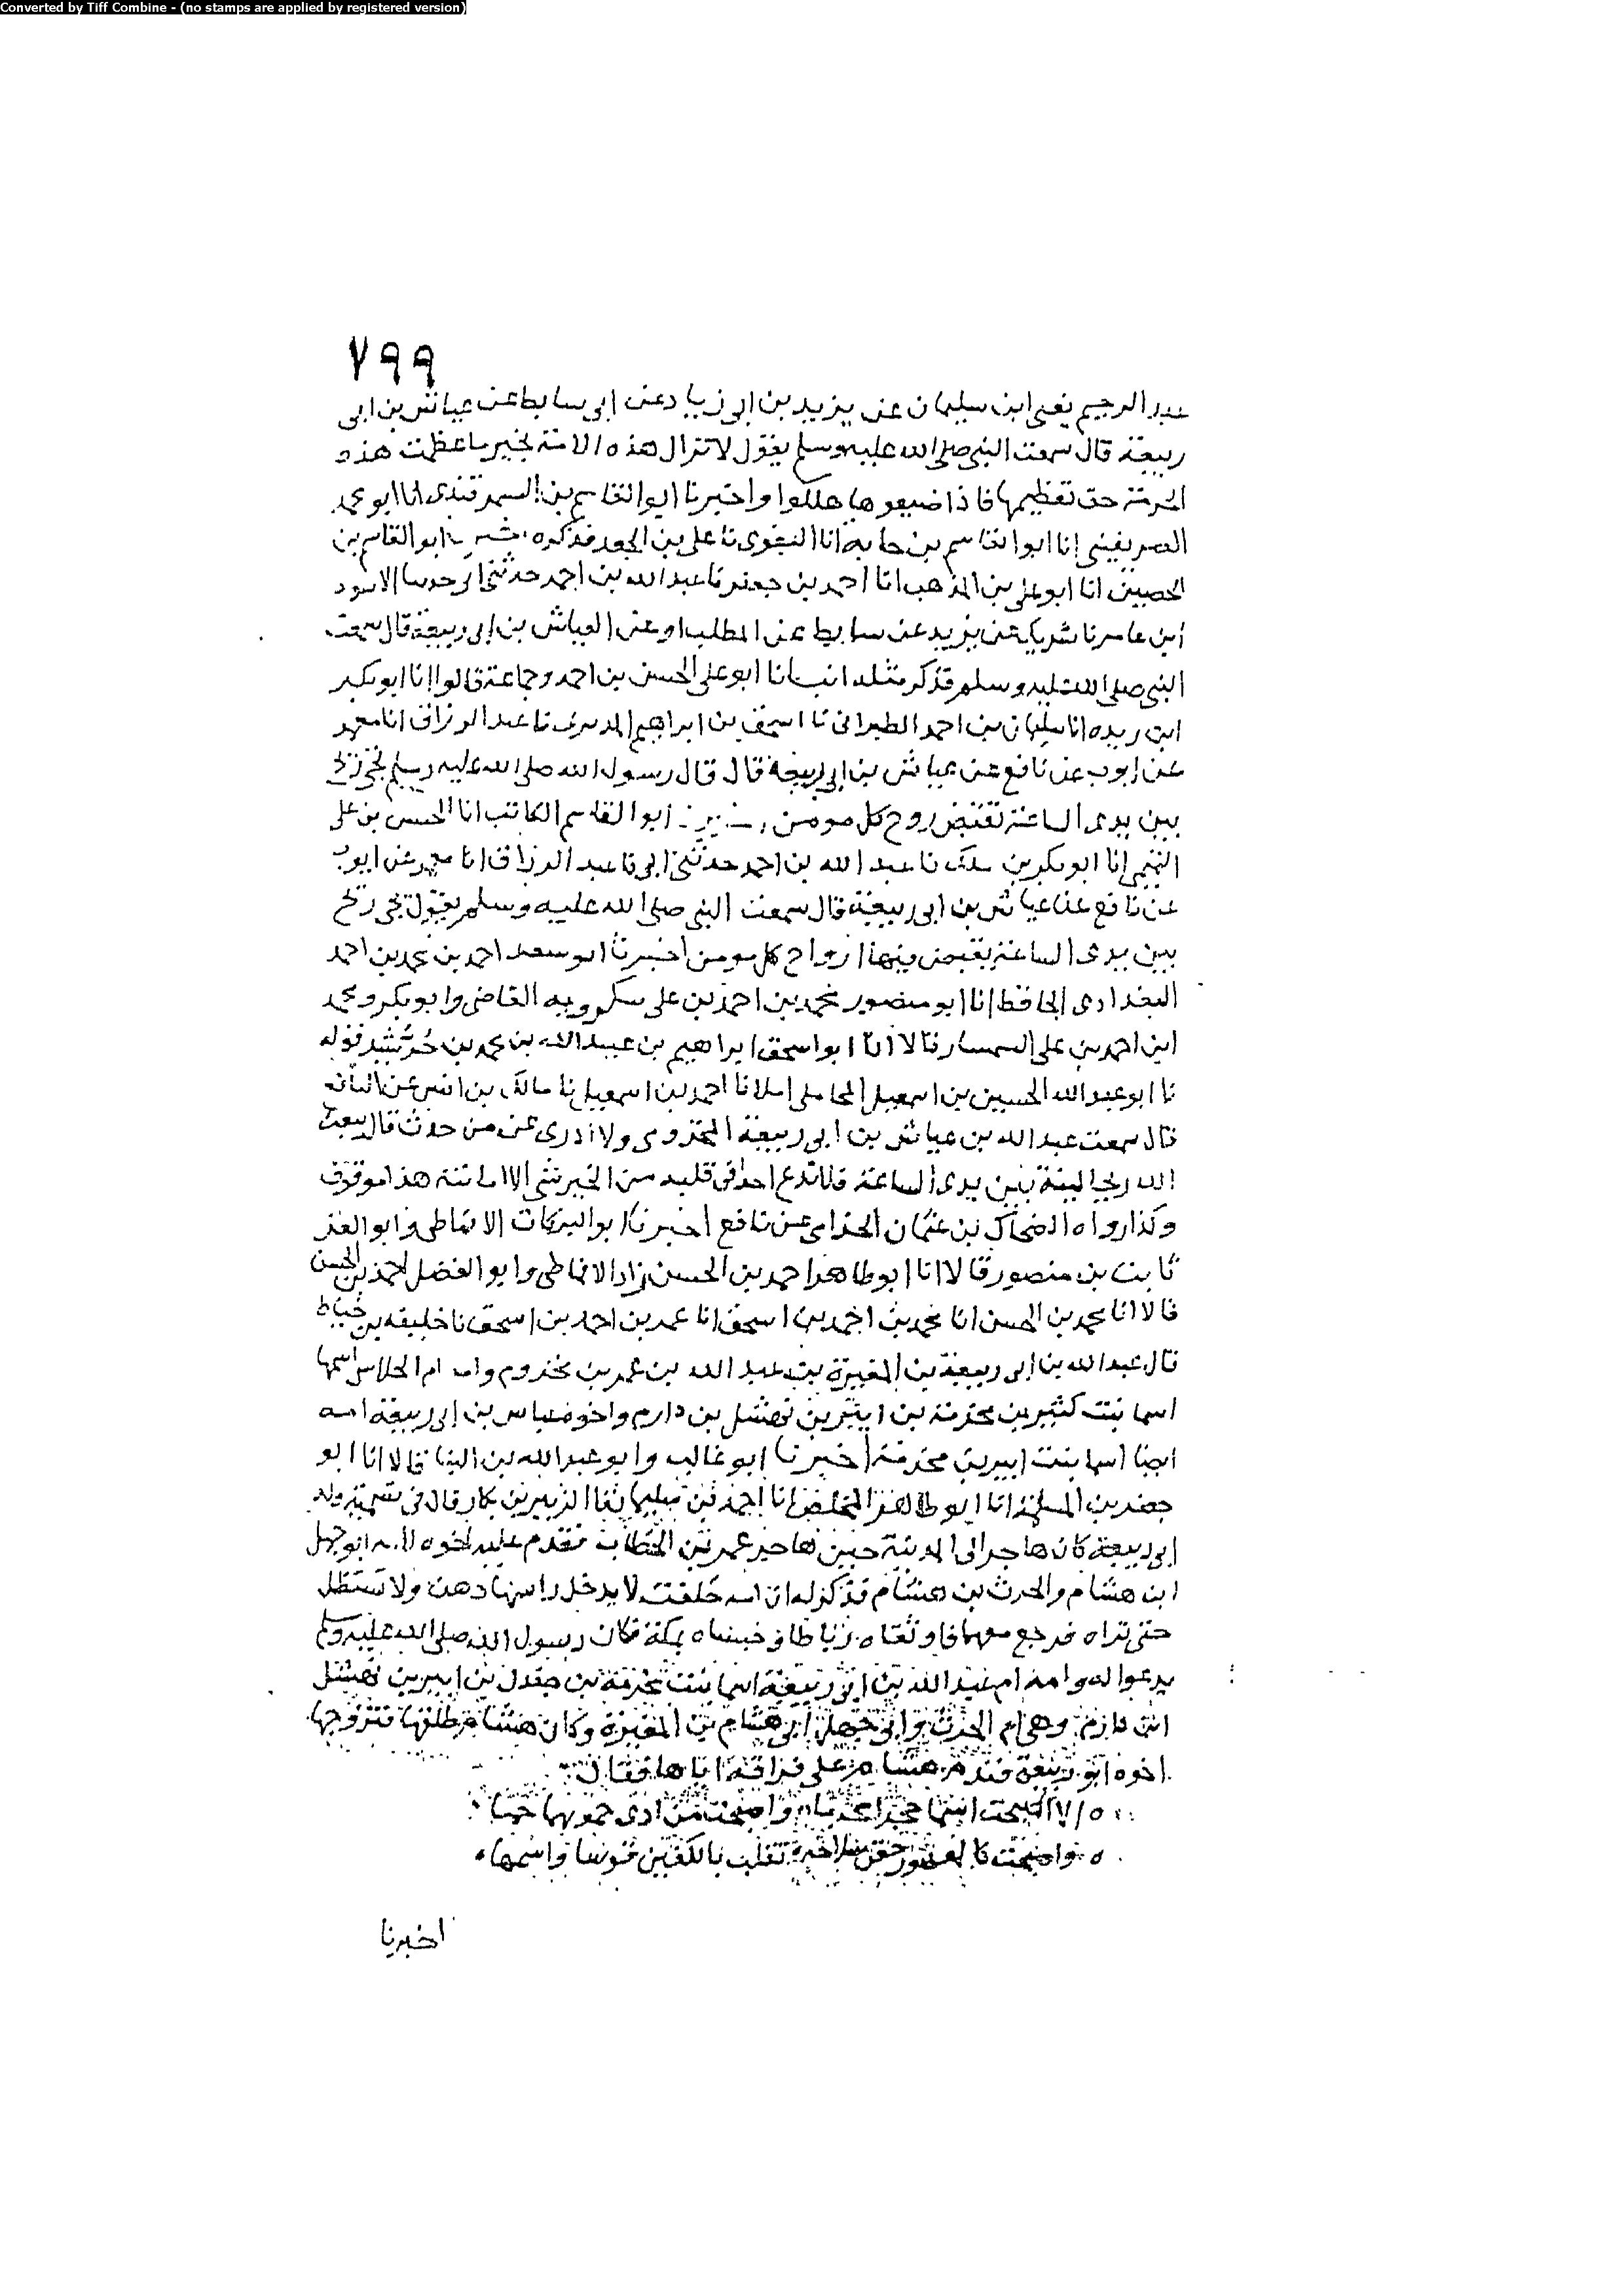 Converted by Tiff Combine - (no stamps are applied by registered version)
٧٩٩
عبد الرحيم يعني ابن سليمان عن يزيد بن ابى زياد عن ابى سابط عن عياش بن ابى
ربيعة قال سمعت النبى صلى الله عليه وسلم يقول لا تزال هذه الامة بخير ما عظمت هذه
الحرمة حق تعظيمها فاذا ضيعوها هلكوا واخبرنا ابو القاسم بن السمرقندى انا ابو محمد
الصريفينى انا ابو القاسم بن حبابة انا البغوى نا على بن الجعد فذكره ابو القاسم بن
الحصين انا ابو على بن المذهب انا احمد بن جعفر نا عبد الله بن احمد حدثنى ابى حدثنا الاسود
ابن عامر نا شريك عن يزيد عن سابط عن المطلب او عن العياش بن ابى ربيعة قال سمعت
النبى صلى الله عليه وسلم فذكر مثله انبانا ابو على الحسن بن احمد وجماعة قالوا انا ابو بكر
ابن ريده انا سليمان بن احمد الطبرانى نا اسحق بن ابراهيم الدبرى نا عبد الرزاق انا معمر
عن ايوب عن نافع عن عياش بن ابى ربيعة قال قال رسول الله صلى الله عليه وسلم تجئ ريح
بين يدى الساعة تقبض روح كل مومن ابو القاسم الكاتب انا الحسن بن على
التميمى انا ابو بكر بن ملك نا عبد الله بن احمد حدثنى ابى نا عبد الرزاق انا معمر عن ايوب
عن نافع عن عياش بن ابى ربيعة قال سمعت النبى صلى الله عليه وسلم يقول تجئ ريح
بين يدى الساعة يقبض فيها ارواح كل مومن اخبرنا ابو سعد احمد بن محمد بن احمد
البغدادى الحافظ انا ابو منصور محمد بن احمد بن على شكرويه القاضى وابو بكر محمد
ابن احمد بن على السمسار قالا انا ابو اسحق ابراهيم بن عبيد الله بن محمد بن خرشيد قوله
نا ابو عبد الله الحسين بن اسمعيل المحاملى املا نا احمد بن اسمعيل نا مالك بن انس عن نافع
قال سمعت عبد الله بن عياش بن ابى ربيعة المخزومى ولا ادرى عن من حدث قال يبعث
الله ريحا لينة بين يدى الساعة فلا تدع احدا فى قلبه من الخير شئ الا اماتته هذا موقوف
وكذا رواه الضحاك بن عثمان الحزامى عن نافع اخبرنا ابو البركات الانماطى وابو العز
ثابت بن منصور قالا انا ابو طاهر احمد بن الحسن زاد الانماطى وابو الفضل احمد بن الحسن
قالا انا محمد بن الحسن انا محمد بن احمد بن اسحق انا عمر بن احمد بن اسحق نا خليفه بن خياط
قال عبد الله بن ابى ربيعة بن المغيرة بن عبد الله بن عمر بن مخزوم وامه ام الجلاس اسمها
اسما بنت كثير بن مخرمة بن ابير بن نهشل بن دارم واخوه عياش بن ابى ربيعة امه
ايضا اسما بنت ابير بن مخرمة اخبرنا ابو غالب وابو عبد الله بن البنا قالا انا ابو
جعفر بن المسلمة انا ابو طاهر المخلص انا احمد بن سليمان نا الزبير بن بكار قال فى تسمية ولد
ابى ربيعة كان هاجر الى المدينة حين هاجر عمر بن الخطاب فقدم عليه اخوه لامه ابو جهل
ابن هشام والحرث بن هشام فذكر له ان امه حلفت لا يدخل راسها دهن ولا تستظل
حتى تراه فرجع معهما فاوثقاه رباطا وحبساه بمكة فكان رسول الله صلى الله عليه وسلم
يدعوا له وامه ام عبد الله بن ابى ربيعة اسما بنت مخرمة بن جندل بن ابير بن نهشل
ابن دارم وهى ام الحرث وابى جهل ابى هشام بن المغيرة وكان هشام طلقها فتزوجها
اخوه ابو ربيعة فندم هشام على فراقه اياها فقال
الا اصبحت اسما حجرا محرما واصبحت من ادنى حموتها حما
واصبحت كالمقمور جفن سلاحه تقلب بالكفين قوسا واسهما
اخبرنا